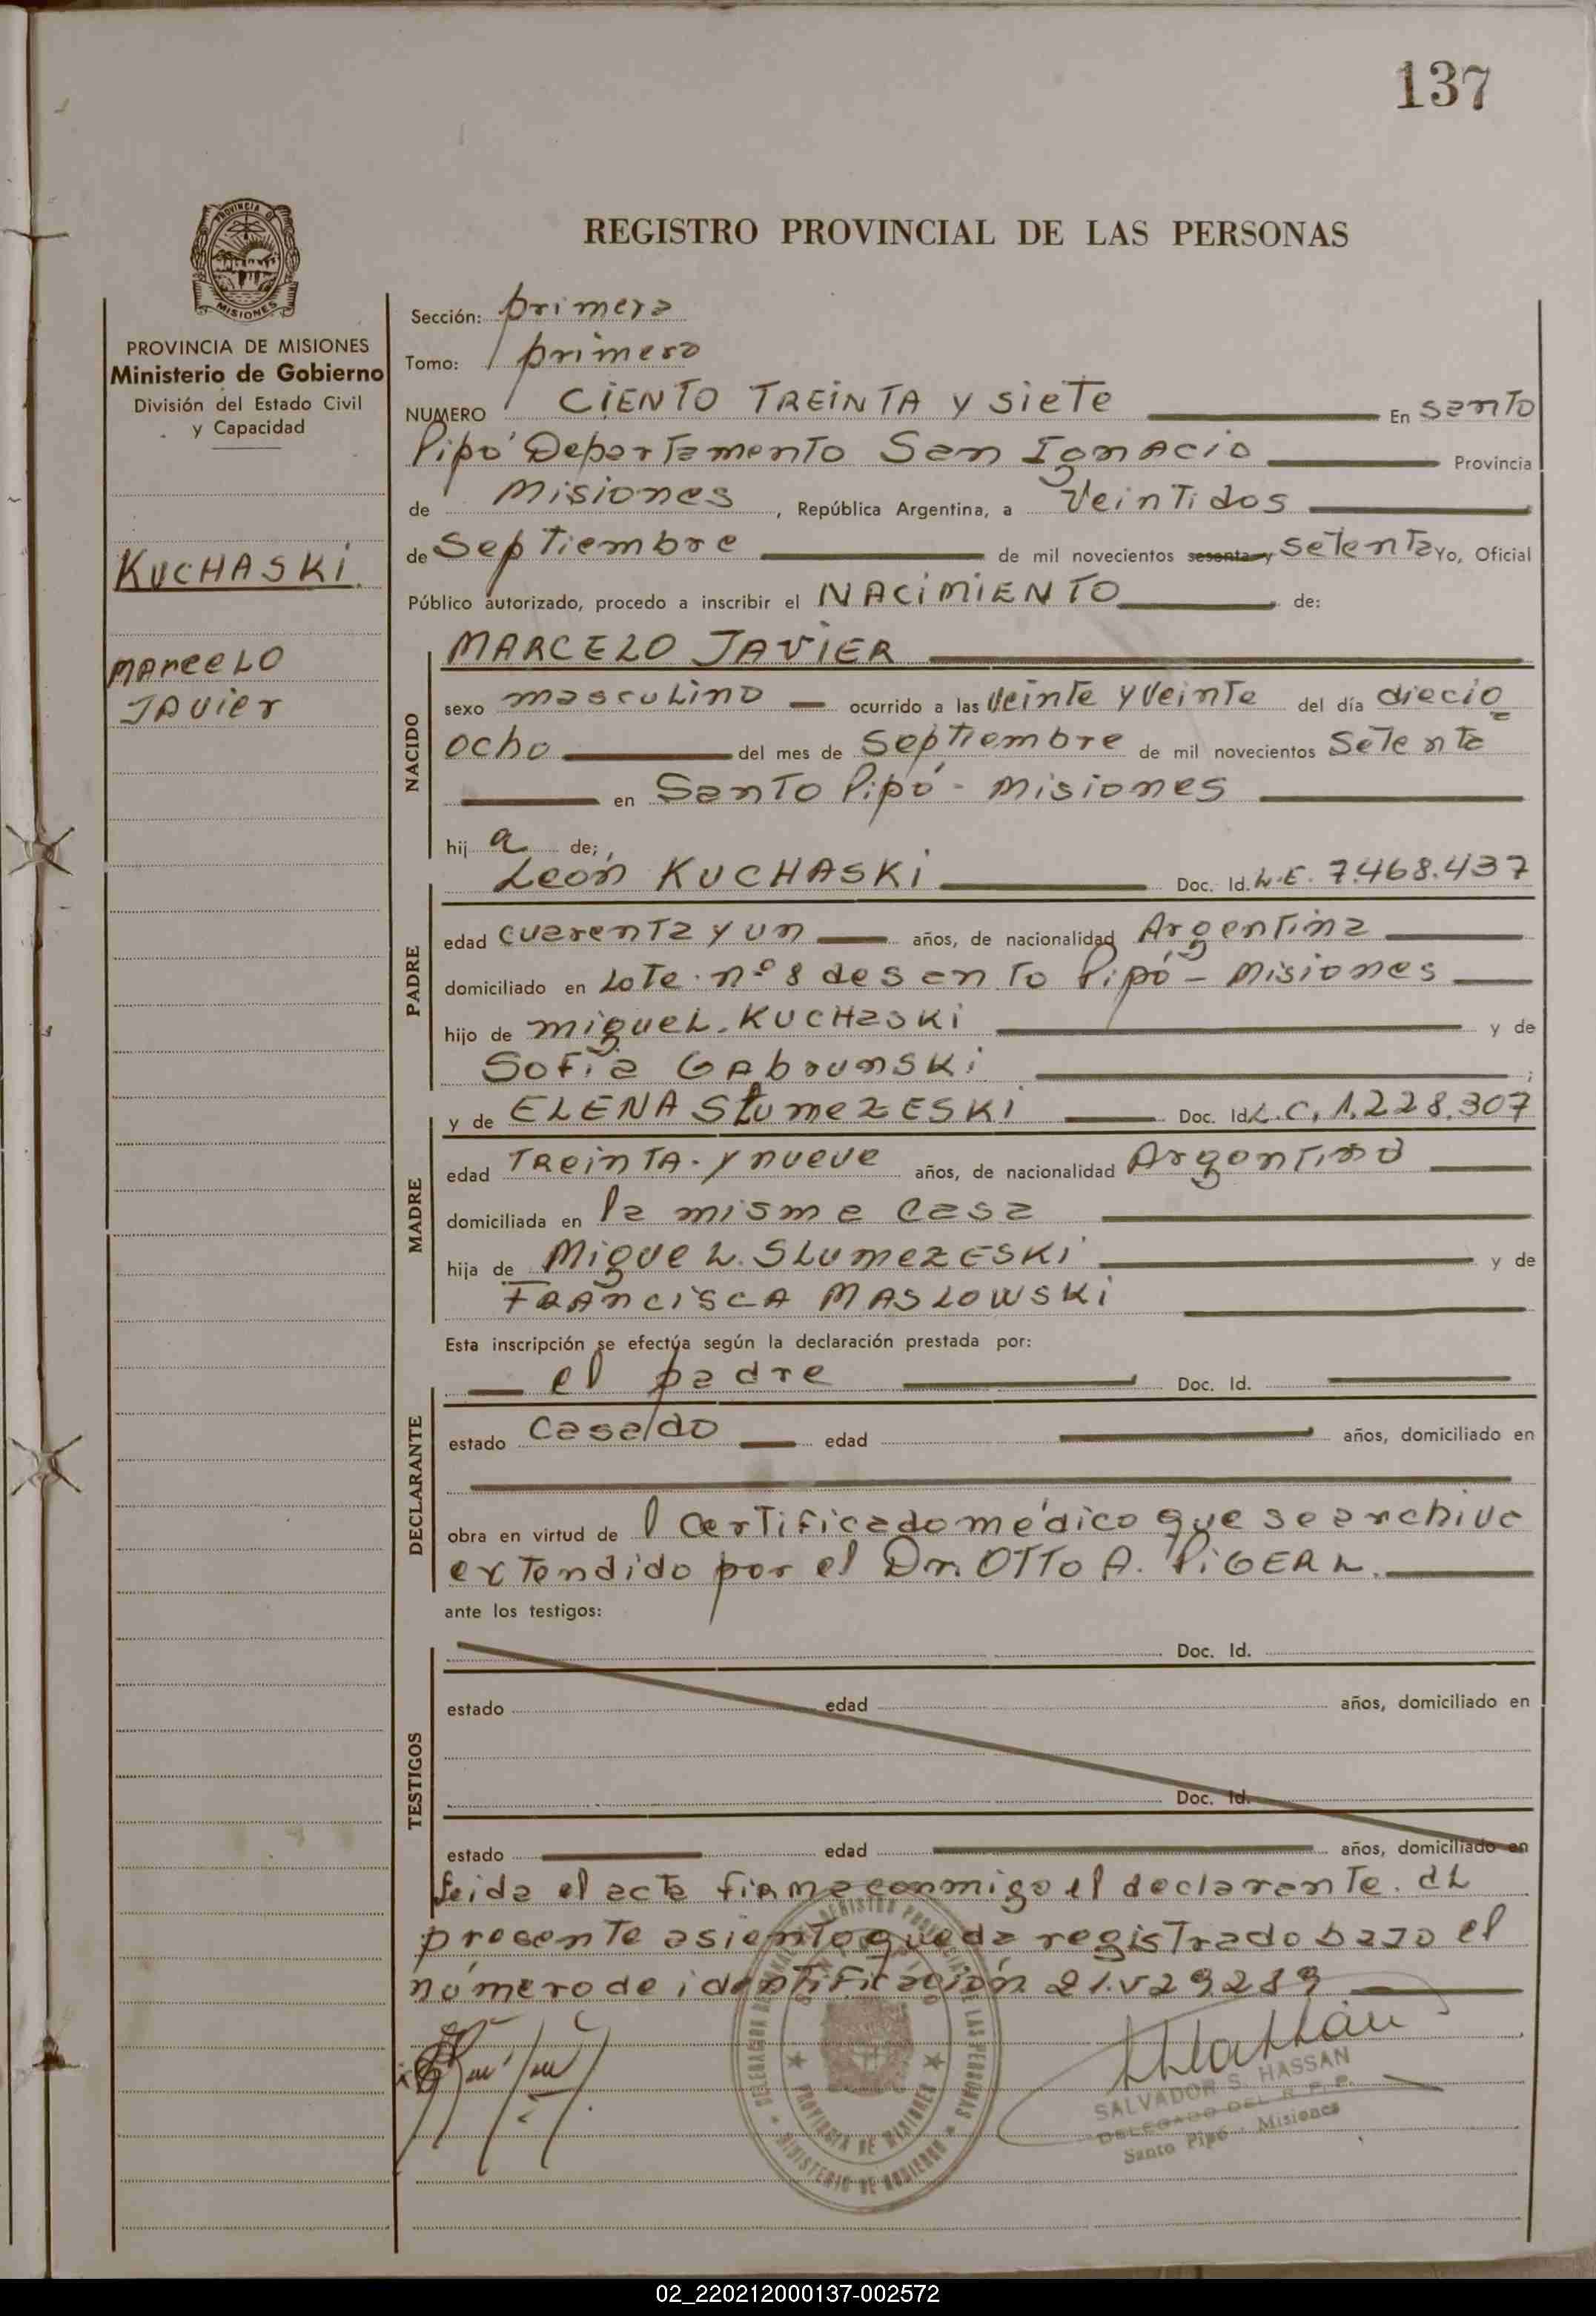 137
REGISTRO PROVINCIAL DE LAS PERSONAS
PROVINCIA DE MISIONES
PROVINCIA DE MISIONES
Ministerio de Gobierno
División del Estado Civil
y Capacidad
KUCHASKI.
MARCELO
JAVIER
Sección: primera
Tomo: primero
NUMERO CIENTO TREINTA y SIETE En Santo
Pipó Departamento San Ignacio Provincia
de Misiones, República Argentina, a Veintidos
de Septiembre de mil novecientos sesenta y Setenta Yo, Oficial
Público autorizado, procedo a inscribir el NACIMIENTO de:
NACIDO
MARCELO JAVIER
sexo masculino ocurrido a las Veinte y Veinte del día diecio=
ocho del mes de Septiembre de mil novecientos Setenta
en Santo Pipó - Misiones
hij a de;
PADRE
León KUCHASKI Doc. Id. L.E. 7.468.437
edad cuarenta y un años, de nacionalidad Argentina
domiciliado en Lote nº 8 de santo Pipó - Misiones
hijo de Miguel KUCHaSKi y de
Sofia Gabrunski ;
MADRE
y de ELENA SLUMEZESKI Doc. Id. L.C. 1.228.307
edad TREINTA y nueve años, de nacionalidad Argentina
domiciliada en la misma casa
hija de Miguel SLUMEZESKI y de
FRANCISCA MASLOWSKI
Esta inscripción se efectúa según la declaración prestada por:
DECLARANTE
el padre Doc. Id.
estado Casado edad años, domiciliado en
obra en virtud de l Certificado médico que se archiva
extendido por el Dr. OTTO A. PIGERL.
ante los testigos:
TESTIGOS
Doc. Id.
estado edad años, domiciliado en
Doc. Id.
estado edad años, domiciliado en
Leida el acta firma conmigo el declarante. El
presente asiento queda registrado bajo el
número de identificación 21.
DELEGADA REGISTRO PROVINCIAL DE LAS PERSONAS
PROVINCIA DE MISIONES
MINISTERIO DE GOBIERNO
SALVADOR S. HASSAN
DELEGADO DEL R. P. P.
Santo Pipó - Misiones
02_220212000137-002572